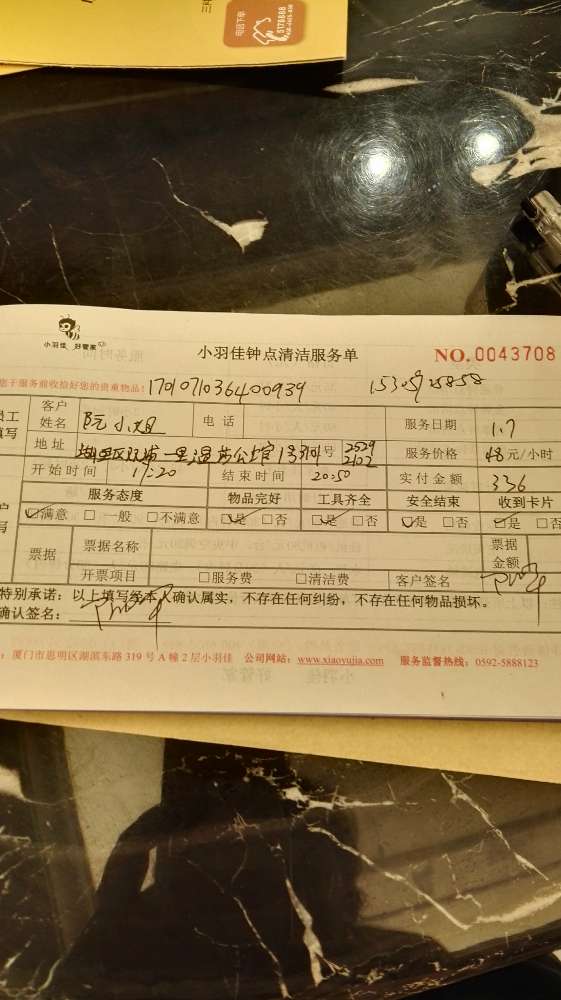 电话下单
5178888
小羽佳 好管家
小羽佳钟点清洁服务单
NO.0043708
您于服务前收拾好您的贵重物品!
1701071036400939
客户姓名 阮小姐 电话 服务日期 1.7
地址 湖里区 一里 公馆1号 号 2529 2102 服务价格 48元/小时
开始时间 结束时间 20:50 实付金额 336
服务态度 物品完好 工具齐全 安全结束 收到卡片
☑满意 □一般 □不满意 ☑是 □否 ☑是 □否 ☑是 □否 ☑是 □否
票据 票据名称 票据金额
开票项目 □服务费 □清洁费 客户签名
特别承诺:以上填写经本人确认属实,不存在任何纠纷,不存在任何物品损坏。
确认签名:
:厦门市思明区湖滨东路319号A幢2层小羽佳 公司网站:www.xiaoyujia.com 服务监督热线:0592-5888123